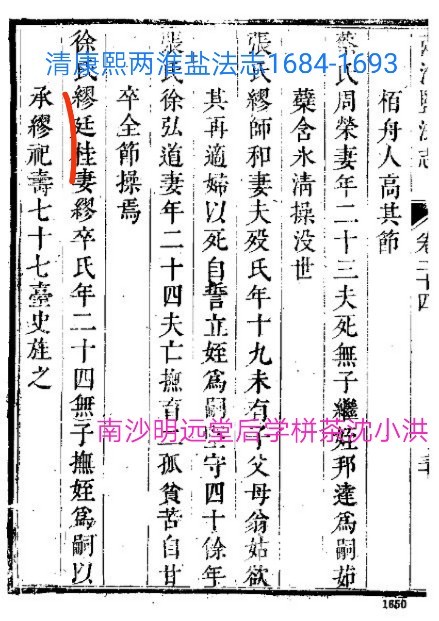 清康熙两淮盐法志1684-1693
卷二十四
栢舟人高其節
蔡氏周榮妻年二十三夫死無子繼姪邦達爲嗣茹
蘗含氷清操没世
張氏繆師和妻夫殁氏年十九未有子父母翁姑欲
其再適婦以死自誓立姪爲嗣堅守四十餘年
張氏徐弘道妻年二十四夫亡撫育一孤貧苦自甘
卒全節操焉
徐氏繆廷桂妻繆卒氏年二十四無子撫姪爲嗣以
承繆祀壽七十七臺史旌之
南沙明远堂后学栟茶沈小洪
1650